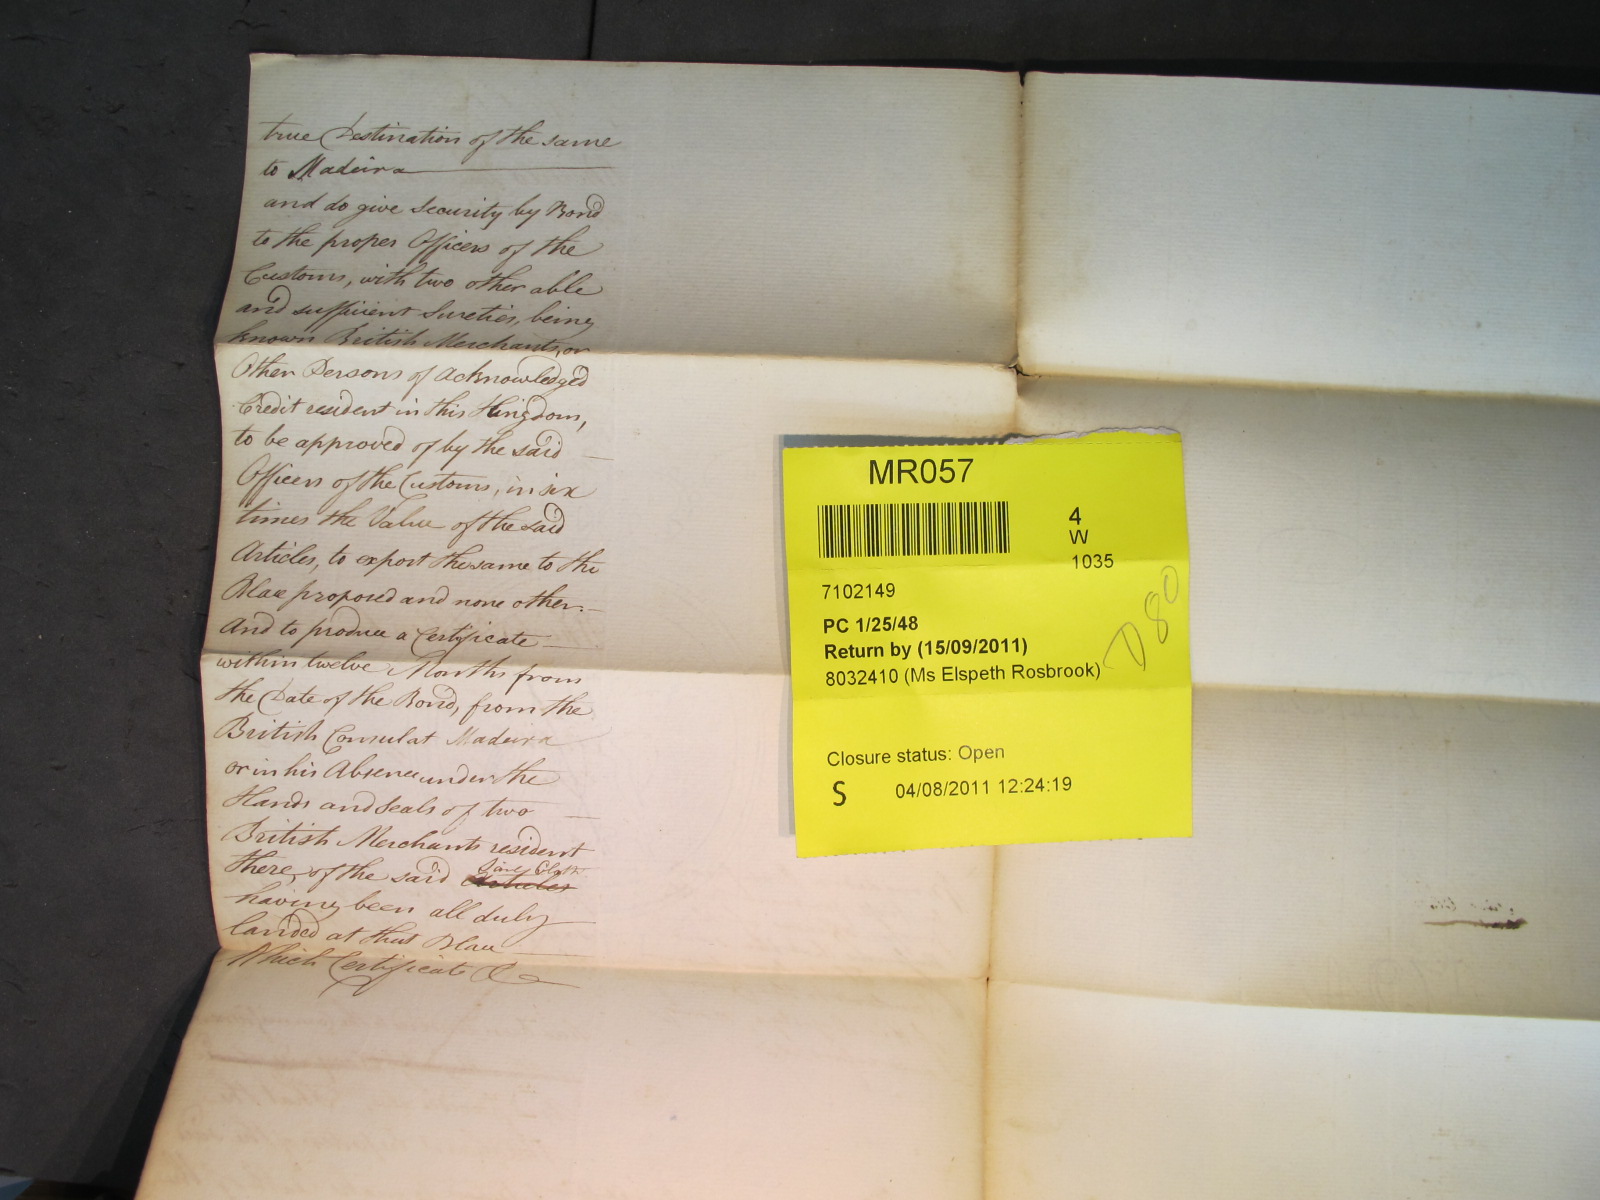 true Destination of the same
to Madeira
and do give Security by Bond
to the proper Officers of the
Customs, with two other able
and sufficient Sureties, being
known British Merchants, or
Other Persons of acknowledged
Credit resident in this Kingdom,
to be approved of by the said
Officers of the Customs, in six
times the Value of the said
Articles, to export the same to the
Place proposed and none other.
And to produce a Certificate
within twelve Months from
the Date of the Bond, from the
British Consul at Madeira
or in his Absence under the
Hands and Seals of two
British Merchants resident
there, of the said Articles
having been all duly
landed at that Place
Which Certificate &c
MR057
4
W
1035
7102149
PC 1/25/48
Return by (15/09/2011)
8032410 (Ms Elspeth Rosbrook)
D80
Closure status: Open
S 04/08/2011 12:24:19